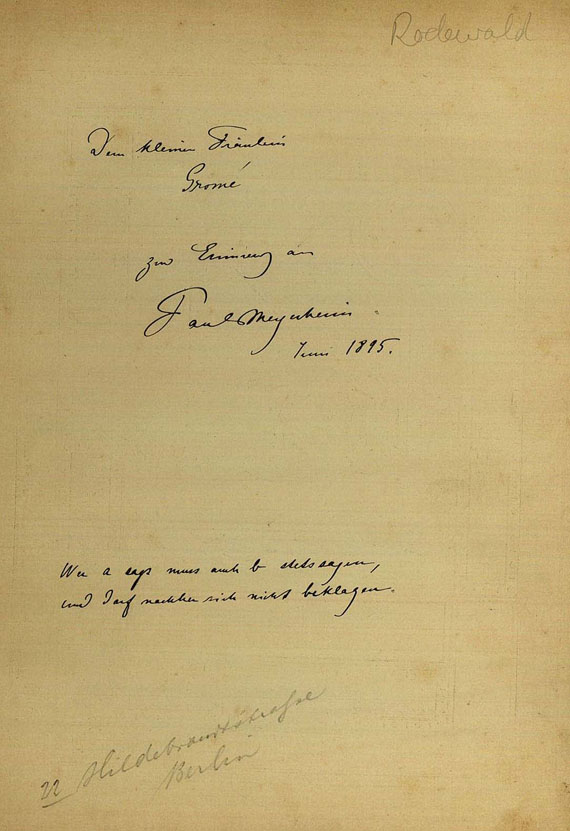 Rodewald
Dem kleinen Fräulein
Gromé
zur Erinnerg an
Paul Meyerheim.
Juni 1895.
Wer a sagt muss auch b stets sagen,
und darf nachher sich nicht beklagen.
22 Hildebrandtstrasse
Berlin